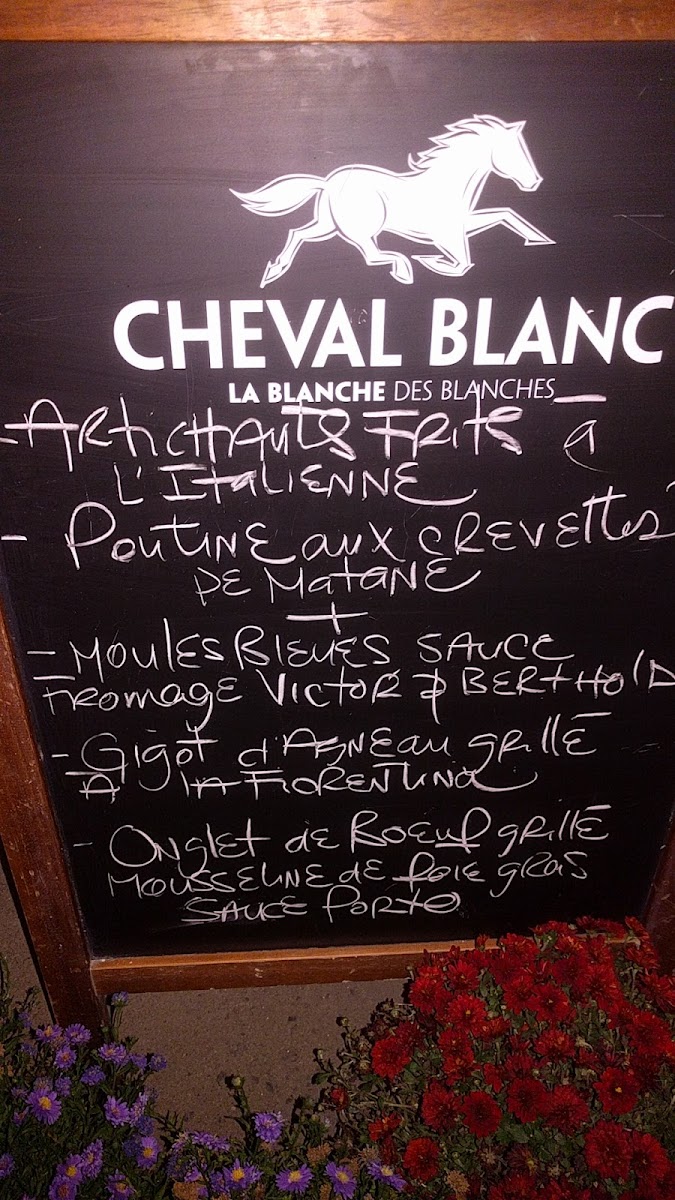 CHEVAL BLANC
LA BLANCHE DES BLANCHES
- ARTICHAUTS FRITS à
L'ITALIENNE
- POUTINE aux CREVETTES
DE MATANE
+
- MOULES BLEUES SAUCE
FROMAGE VICTOR & BERTHOLD
- GIGOT d'AGNEAU GRILLÉ
À LA FIORENTINA
- ONGLET de BOEUF GRILLÉ
MOUSSELINE DE foie gras
SAUCE PORTO